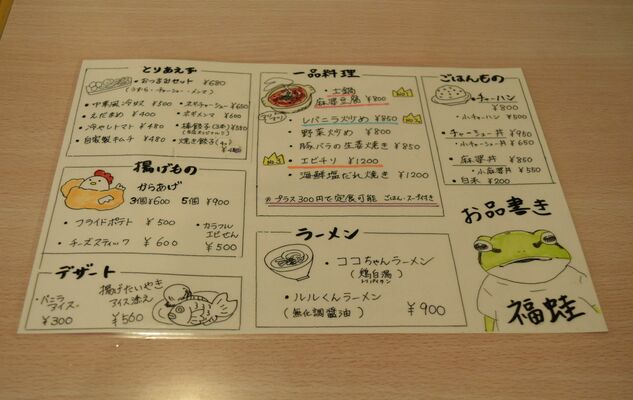 とりあえず
・おつまみセット ¥680
(うずら・チャーシュー・メンマ)
・中華風冷奴 ¥300
・えだまめ ¥400
・冷やしトマト ¥480
・自家製キムチ ¥480
・ネギチャーシュー ¥650
・ネギメンマ ¥600
・焼き餃子
揚げもの
からあげ
3個¥600 5個 ¥900
・フライドポテト ¥500
・チーズスティック ¥600
・カラフルエビせん
¥500
デザート
・バニラアイス
¥300
揚げたいやき
アイス添え
¥560
一品料理
・土鍋
麻婆豆腐 ¥800
・レバニラ炒め ¥850
・野菜炒め ¥800
・豚バラの生姜焼き ¥850
・エビチリ ¥1200
・海鮮塩だれ焼き ¥1200
※プラス300円で定食可能 ごはん・スープ付き
ラーメン
・ココちゃんラーメン
(鶏白湯)
トリパイタン
・ルルくんラーメン
(無化調醤油)
¥900
ごはんもの
・チャーハン
¥800
・小チャーハン ¥500
・チャーシュー丼 ¥950
・小チャーシュー丼 ¥650
・麻婆丼 ¥850
・小麻婆丼 ¥550
・白米 ¥200
お品書き
福蛙